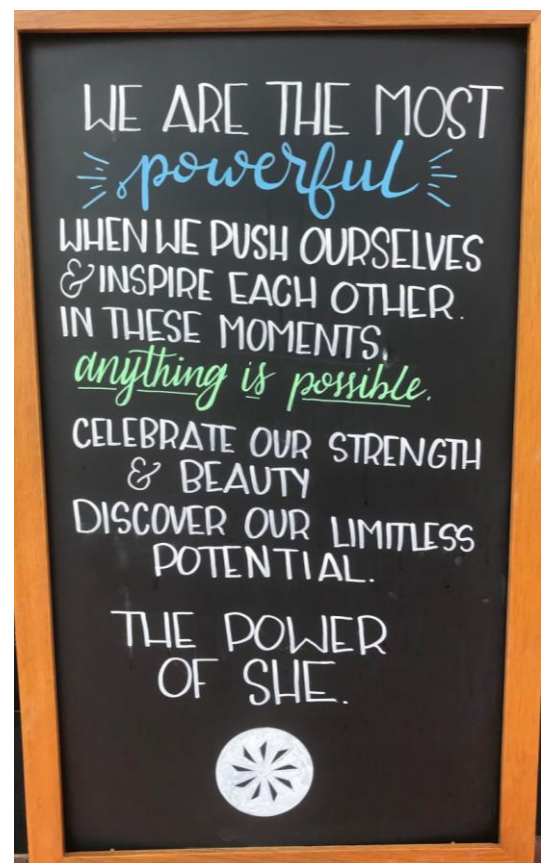 WE ARE THE MOST
powerful
WHEN WE PUSH OURSELVES
& INSPIRE EACH OTHER.
IN THESE MOMENTS,
anything is possible.
CELEBRATE OUR STRENGTH
& BEAUTY
DISCOVER OUR LIMITLESS
POTENTIAL.
THE POWER
OF SHE.